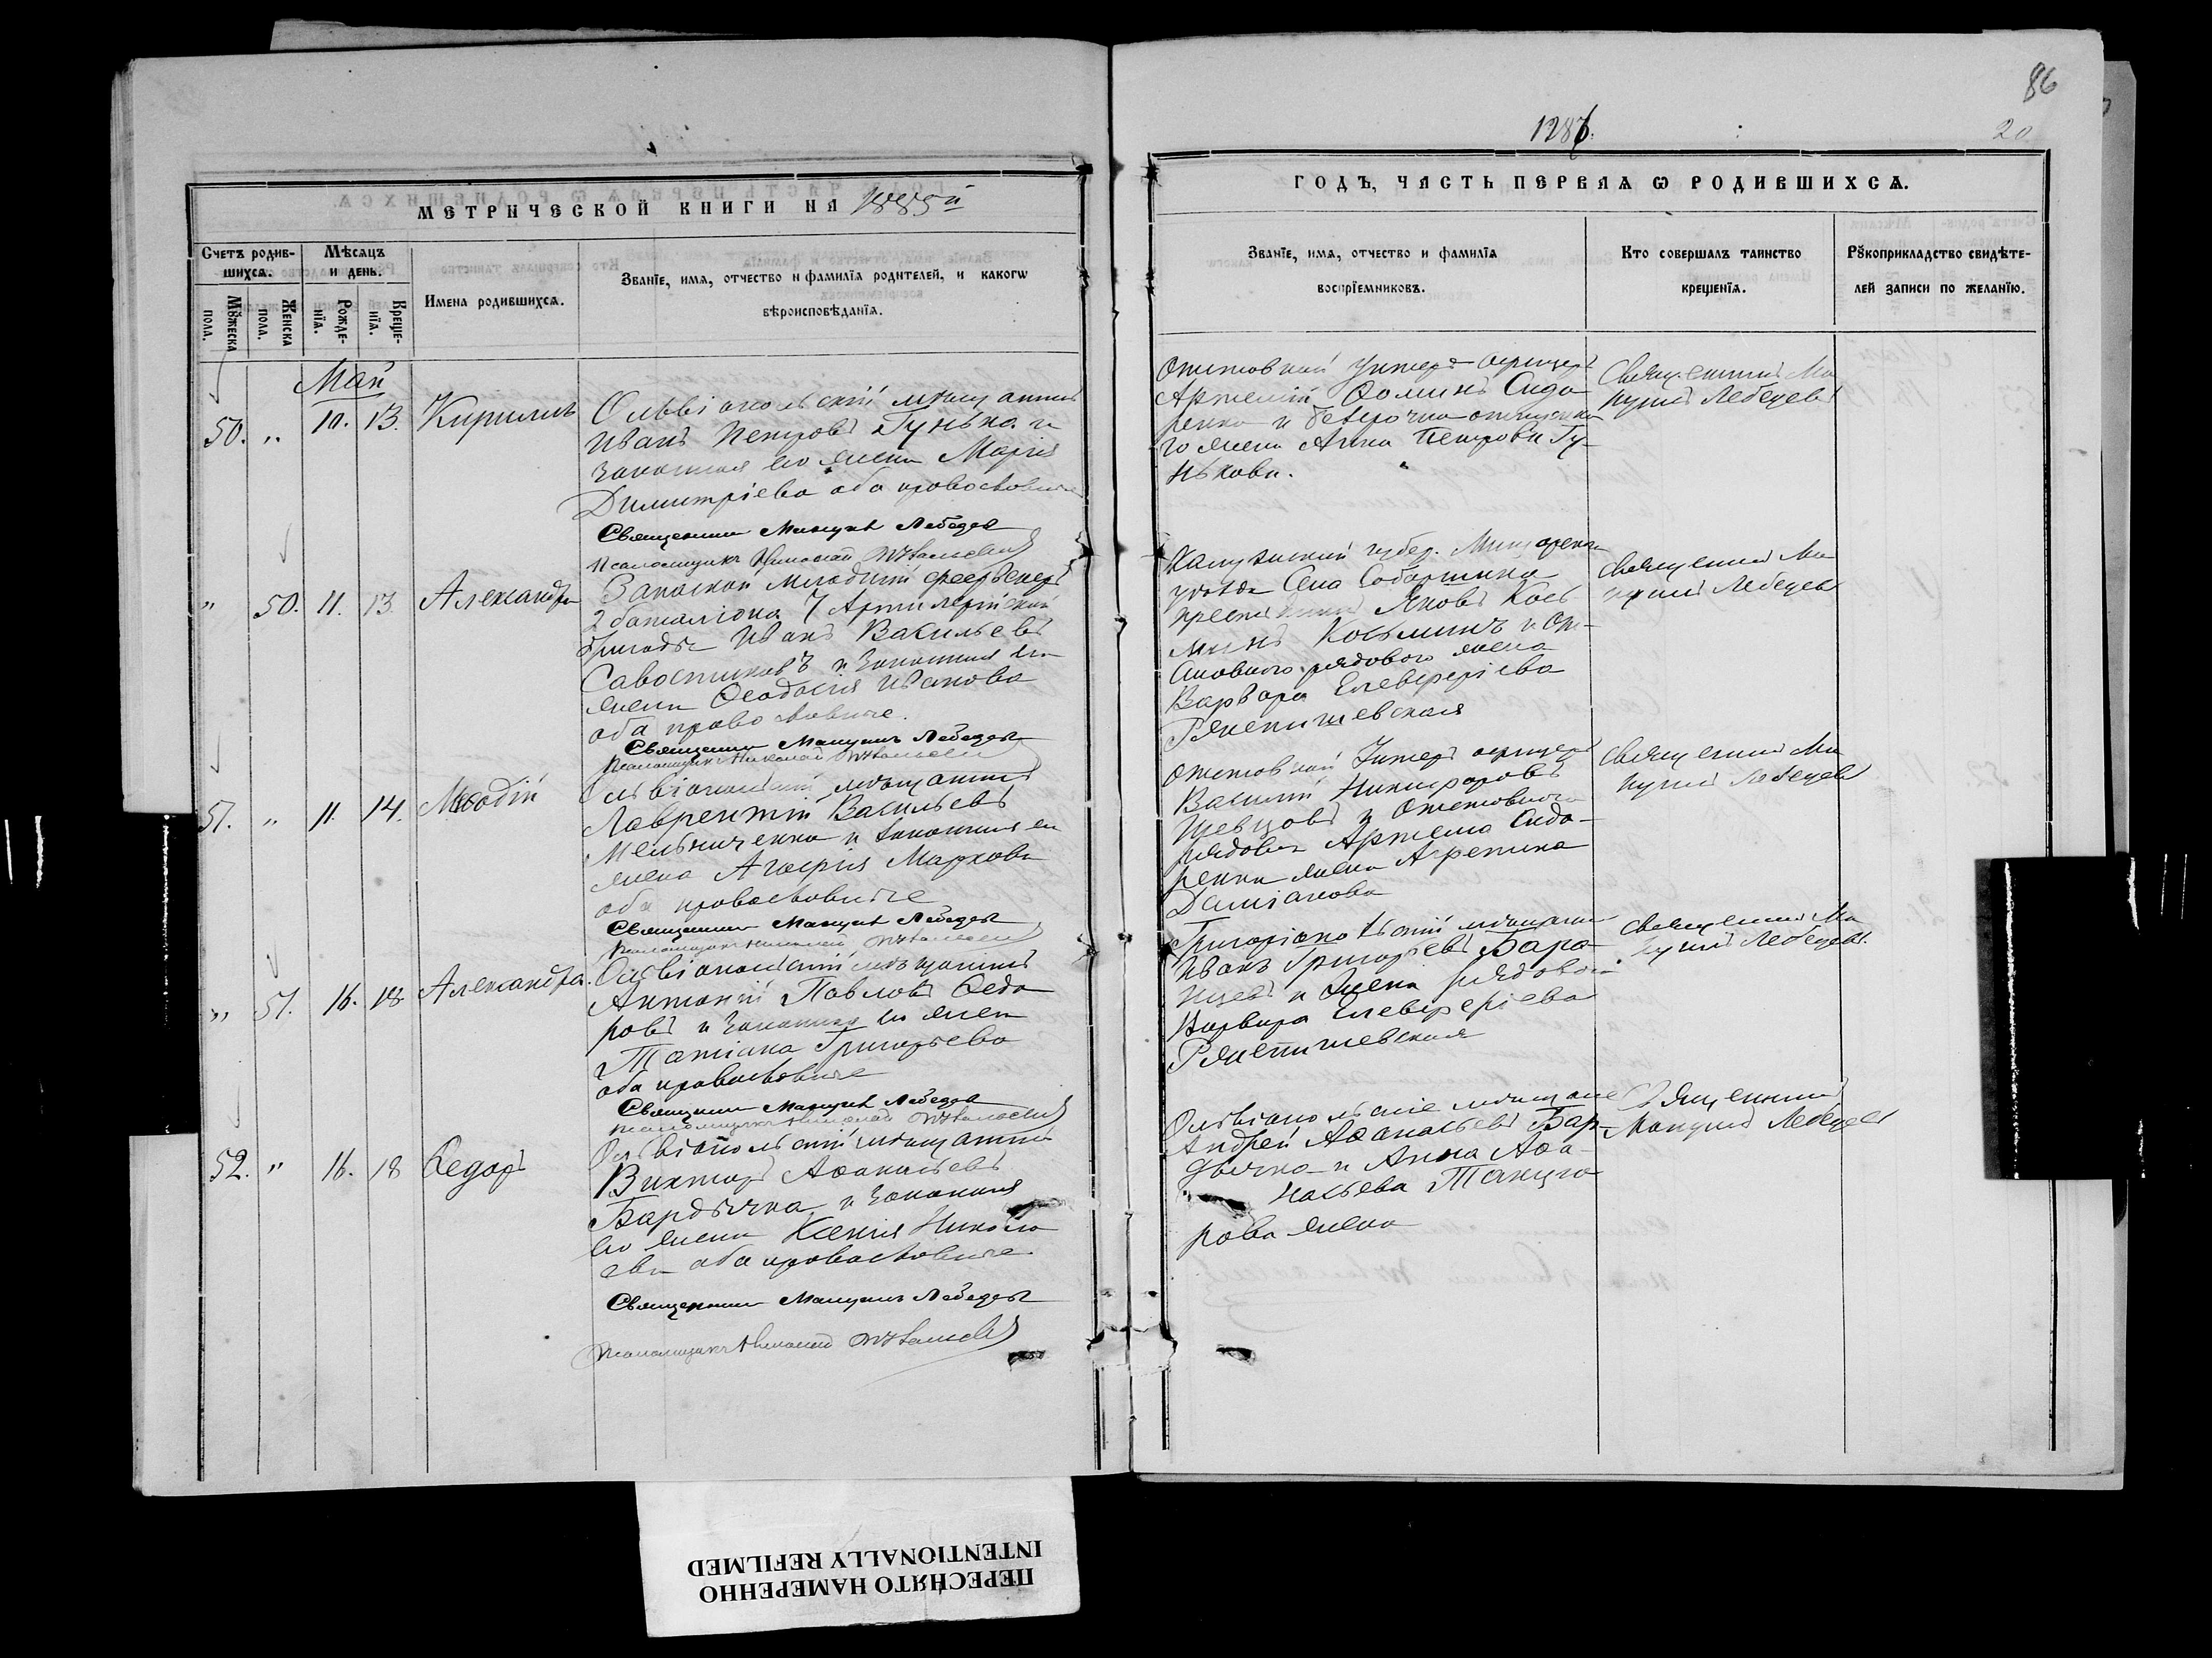 МЕТРИЧЕСКОЙ КНИГИ НА 1885й
Счетъ родив-
шихся.
Мѣсяцъ
и день.
Мужеска
пола.
Женска
пола.
Рожде-
нїя.
Креще-
нїя.
Имена родившихся.
Званїе, имя, отчество и фамилїя родителей, и какогѡ
вѣроисповѣданїя.
Май
50. „ 10. 13. Кириллъ
Ольвіопольскій мѣщанинъ
Иванъ Петровъ Гунька и
законная его жена Марія
Димитріева оба православные
Священникъ Лебедевъ
Псаломщикъ Николай
„ 50. 11. 13. Александра
Запасной младшій феерверкеръ
2 баталіона 7 Артилерійской
бригады Иванъ Васильевъ
Савостиковъ и законная его
жена Ѳеодосія Иванова
оба православные.
Священникъ Лебедевъ
Псаломщикъ Николай
51. „ 11. 14. Меѳодій
Ольвіопольскій мѣщанинъ
Лаврентій Васильевъ
Мельниченко и законная его
жена Агафія Маркова
оба православные
Священникъ Лебедевъ
Псаломщикъ Николай
„ 51. 16. 18. Александра.
Ольвіопольскій мѣщанинъ
Антоній Павловъ Ѳедо
ровъ и законная его жена
Татіана Григорьева
оба православные
Священникъ Лебедевъ
Псаломщикъ Николай
52. „ 16. 18 Ѳедоръ
Ольвіопольскій мѣщанинъ
Викторъ Аѳанасьевъ
Бардычка и законная
его жена Ксенія Никола
ева оба православные
Священникъ Лебедевъ
Псаломщикъ Николай
86
1286.
20
ГОДЪ, ЧАСТЬ ПЕРВАЯ Ѡ РОДИВШИХСЯ.
Званїе, имя, отчество и фамилїя
воспрїемниковъ.
Кто совершалъ таинство
крещенїя.
Рꙋкоприкладство свидѣте-
лей записи по желанїю.
Отставной Унтеръ офицеръ
Артемій Ѳоминъ Сидо
ренко и
го жена Анна Петрова Гу-
нькова.
Священникъ Ма
Лебедевъ
Калужской губер. Мещовскаго
уѣзда Села
крестьянинъ Яковъ Кось
минъ Косьминъ и От-
ставного рядового жена
Варвара Елевферіева
Ржепишевская
Священникъ Ма
Лебедевъ
Отставной Унтеръ офицеръ
Василій Никифоровъ
Шевцовъ и Отставного
рядового Артема Сидо-
ренка жена Агрепина
Даміанова
Священникъ Ма
Лебедевъ
Григоріопольскій мѣщанинъ
Иванъ Григорьевъ Бара-
и жена рядового
Варвара Елевферіева
Ржепишевская
Священникъ Ма
Лебедевъ.
Ольвіопольскіе мѣщане
Андрей Аѳанасьевъ Бар-
дычка и Анна Аѳа-
насьева Танцю
рова жена
Священникъ
Лебедевъ
ПЕРЕСНЯТО НАМЕРЕННО
INTENTIONALLY REFILMED